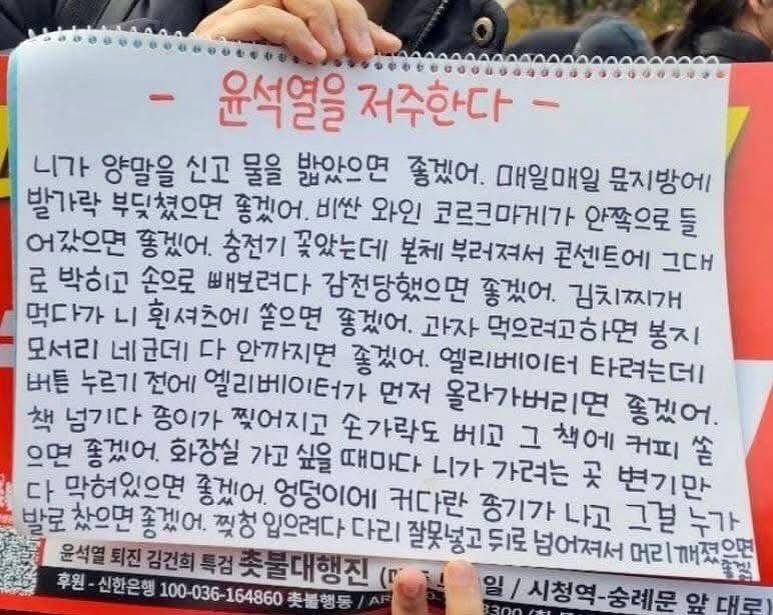 - 윤석열을 저주한다 -
니가 양말을 신고 물을 밟았으면 좋겠어. 매일매일 문지방에
발가락 부딪쳤으면 좋겠어. 비싼 와인 코르크마게가 안쪽으로 들
어갔으면 좋겠어. 충전기 꽂았는데 본체 부러져서 콘센트에 그대
로 박히고 손으로 빼보려다 감전당했으면 좋겠어. 김치찌개
먹다가 니 흰셔츠에 쏟으면 좋겠어. 과자 먹으려고하면 봉지
모서리 네군데 다 안까지면 좋겠어. 엘리베이터 타려는데
버튼 누르기 전에 엘리베이터가 먼저 올라가버리면 좋겠어.
책 넘기다 종이가 찢어지고 손가락도 베고 그 책에 커피 쏟
으면 좋겠어. 화장실 가고 싶을 때마다 니가 가려는 곳 변기만
다 막혀있으면 좋겠어. 엉덩이에 커다란 종기가 나고 그걸 누가
발로 찼으면 좋겠어. 찢청 입으려다 다리 잘못넣고 뒤로 넘어져서 머리 깨졌으면
좋겠어
윤석열 퇴진 김건희 특검 촛불대행진 일 / 시청역~숭례문 앞 대로
후원 - 신한은행 100-036-164860 촛불행동 / 3300